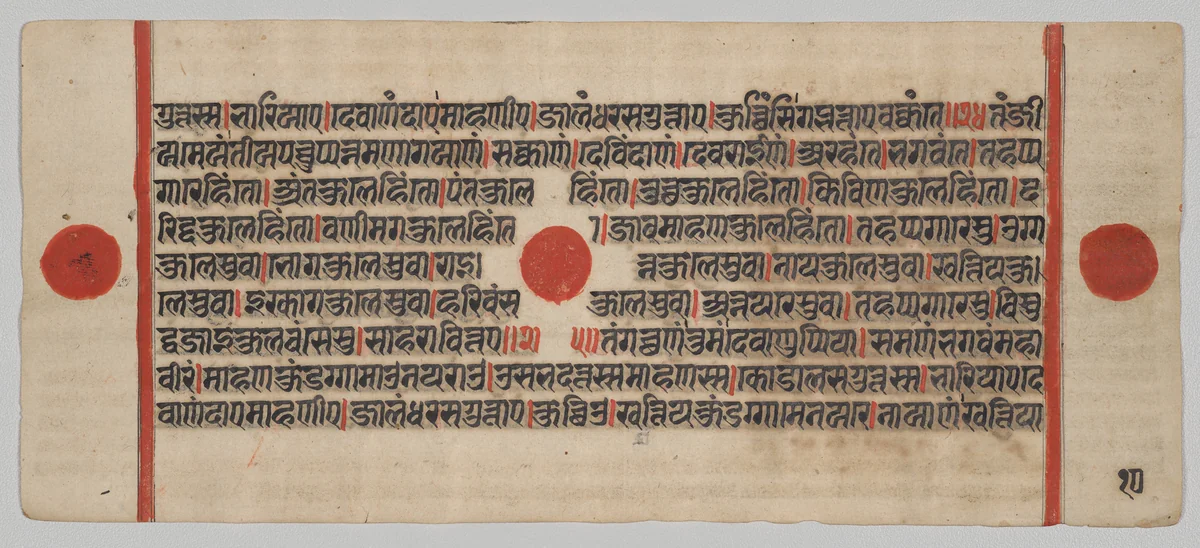 गुत्तस्स।भारियाए।देवाणंदाए माहणीए।जालंधरसगुत्ताए।कुच्छिंसि गब्भत्ताए वक्कंते॥२४ तं जी
यमेयं तीयपच्चुप्पन्नमणागयाणं।सक्काणं।देविंदाणं।देवराईणं।अरहंते।भगवंते।तहप्प
गारेहिंतो।अंतकुलेहिंतो।पंतकुलेहिंतो।तुच्छकुलेहिंतो।किविणकुलेहिंतो।द
रिद्दकुलेहिंतो।वणीमगकुलेहिंतो।जाव माहणकुलेहिंतो।तहप्पगारेसु।उग्ग
कुलेसु वा।भोगकुलेसु वा।राइन्नकुलेसु वा।नायकुलेसु वा।खत्तियकु
लेसु वा।इक्खागकुलेसु वा।हरिवंसकुलेसु वा।अन्नयरेसु वा।तहप्पगारेसु।विसु
द्धजाइकुलवंसेसु।साहरावित्तए॥२५॥तं गच्छ णं तुमं देवाणुप्पिया।समणं भगवं महा
वीरं।माहणकुंडग्गामाउ नयराउ।उसभदत्तस्स माहणस्स।कोडालसगुत्तस्स।भारियाए दे
वाणंदाए माहणीए।जालंधरसगुत्ताए।कुच्छिउ।खत्तियकुंडग्गामे नयरे।नायाणं खत्तिया